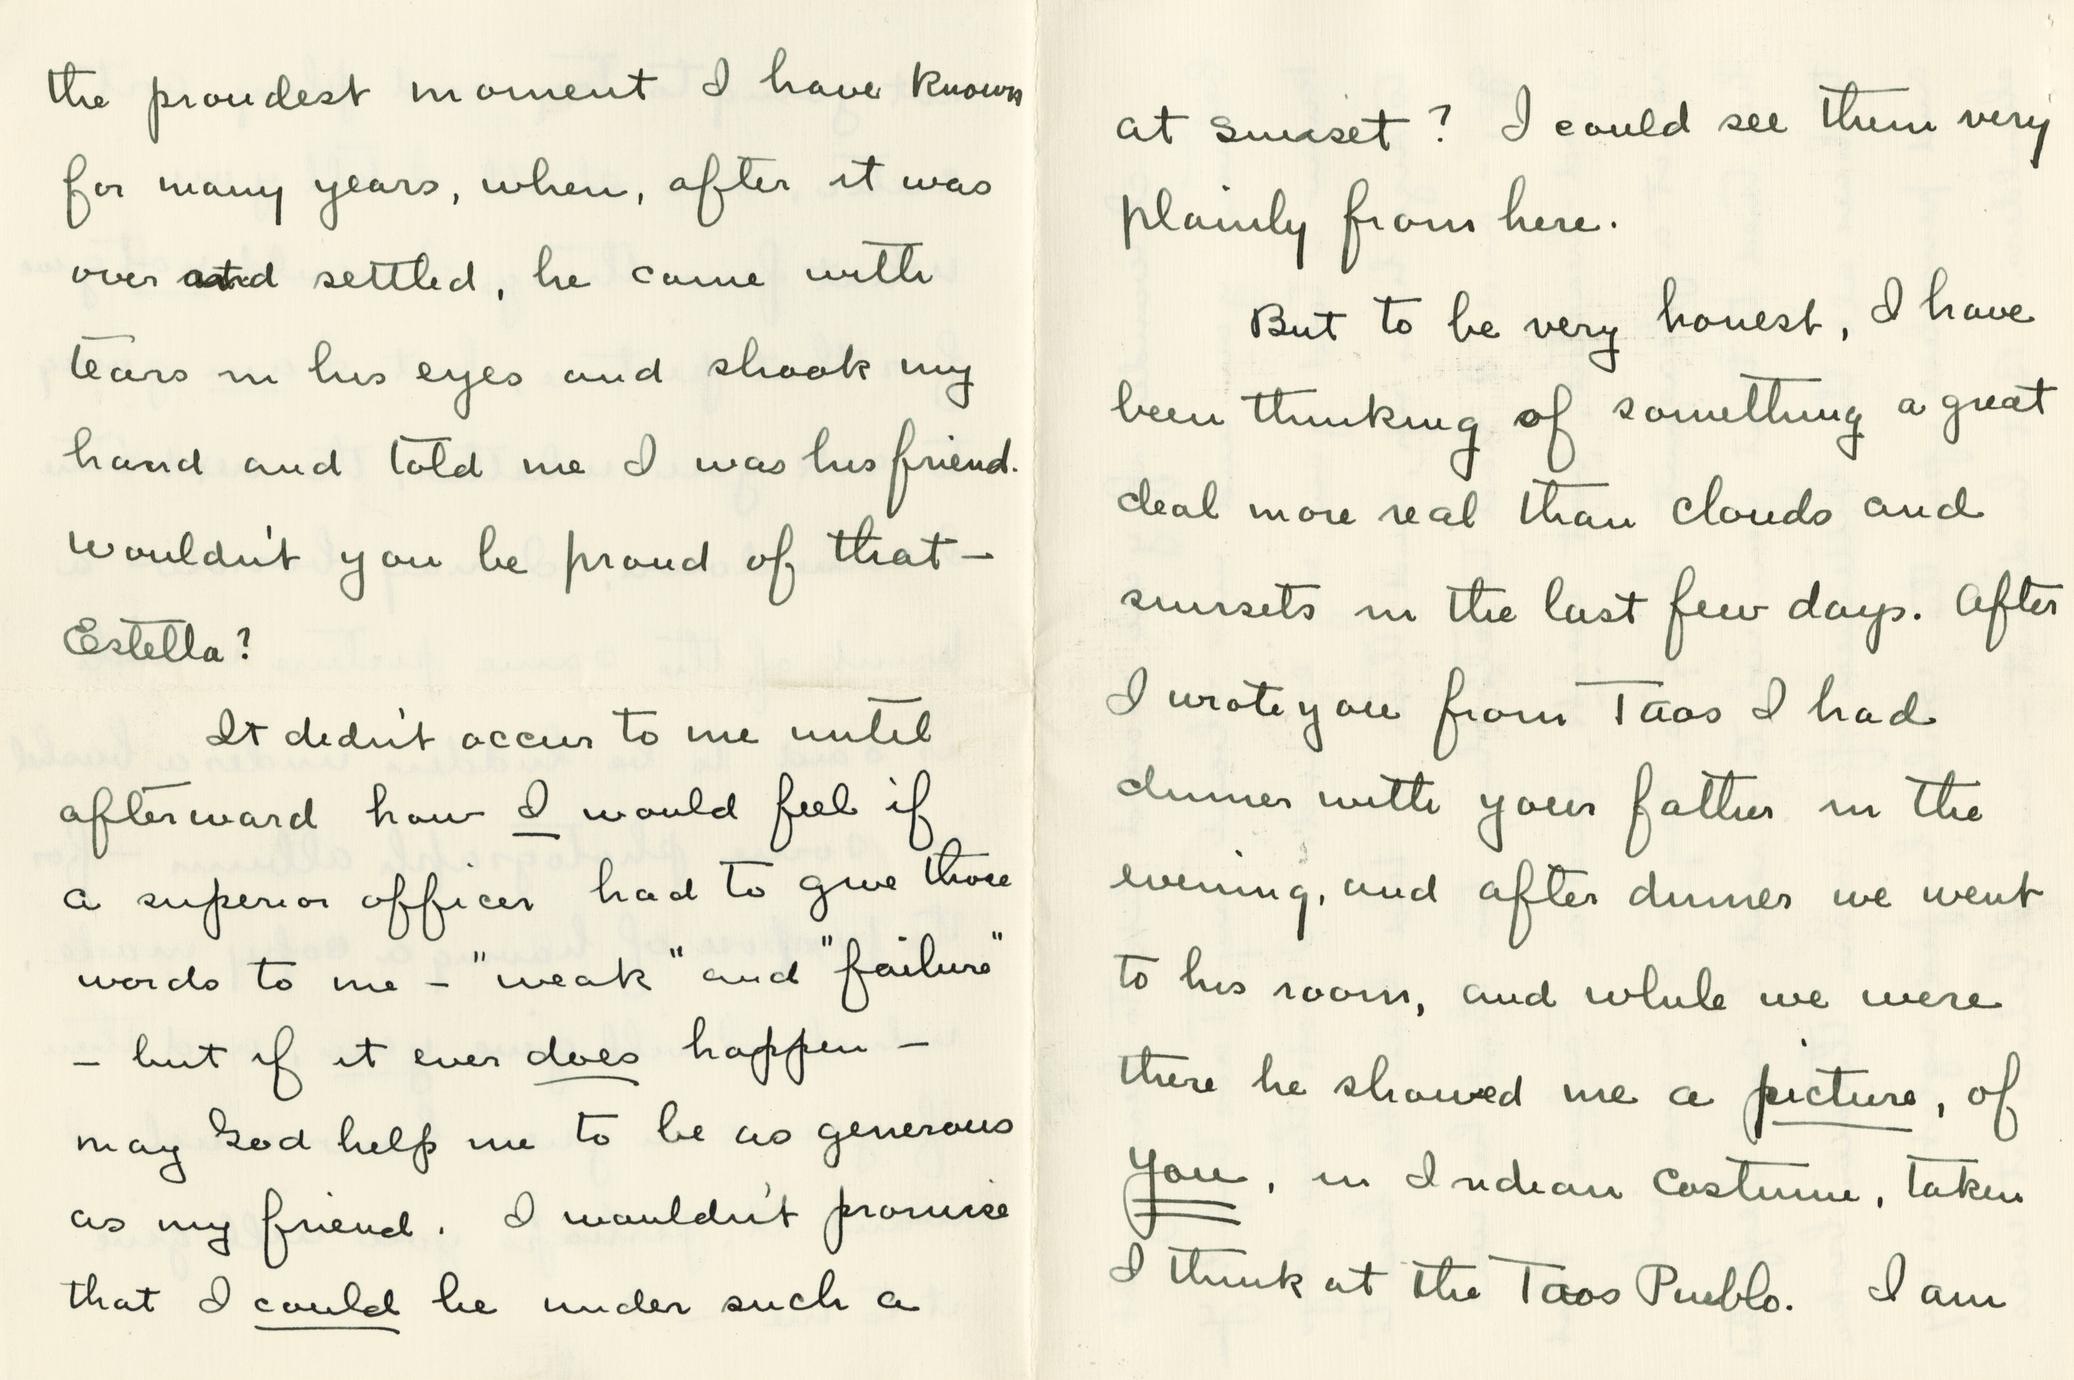 the proudest moment I have known
for many years, when, after it was
over and settled, he came with
tears in his eyes and shook my
hand and told me I was his friend.
wouldn't you be proud of that –
Estella?
It didn't occur to me until
afterward how I would feel if
a superior officer had to give those
words to me – "weak" and "failure"
– but if it ever does happen –
may God help me to be as generous
as my friend. I wouldn't promise
that I could be under such a
at sunset? I could see them very
plainly from here.
But to be very honest, I have
been thinking of something a great
deal more real than clouds and
sunsets in the last few days. After
I wrote you from Taos I had
dinner with your father in the
evening, and after dinner we went
to his room, and while we were
there he showed me a picture, of
you, in Indian costume, taken
I think at the Taos Pueblo. I am